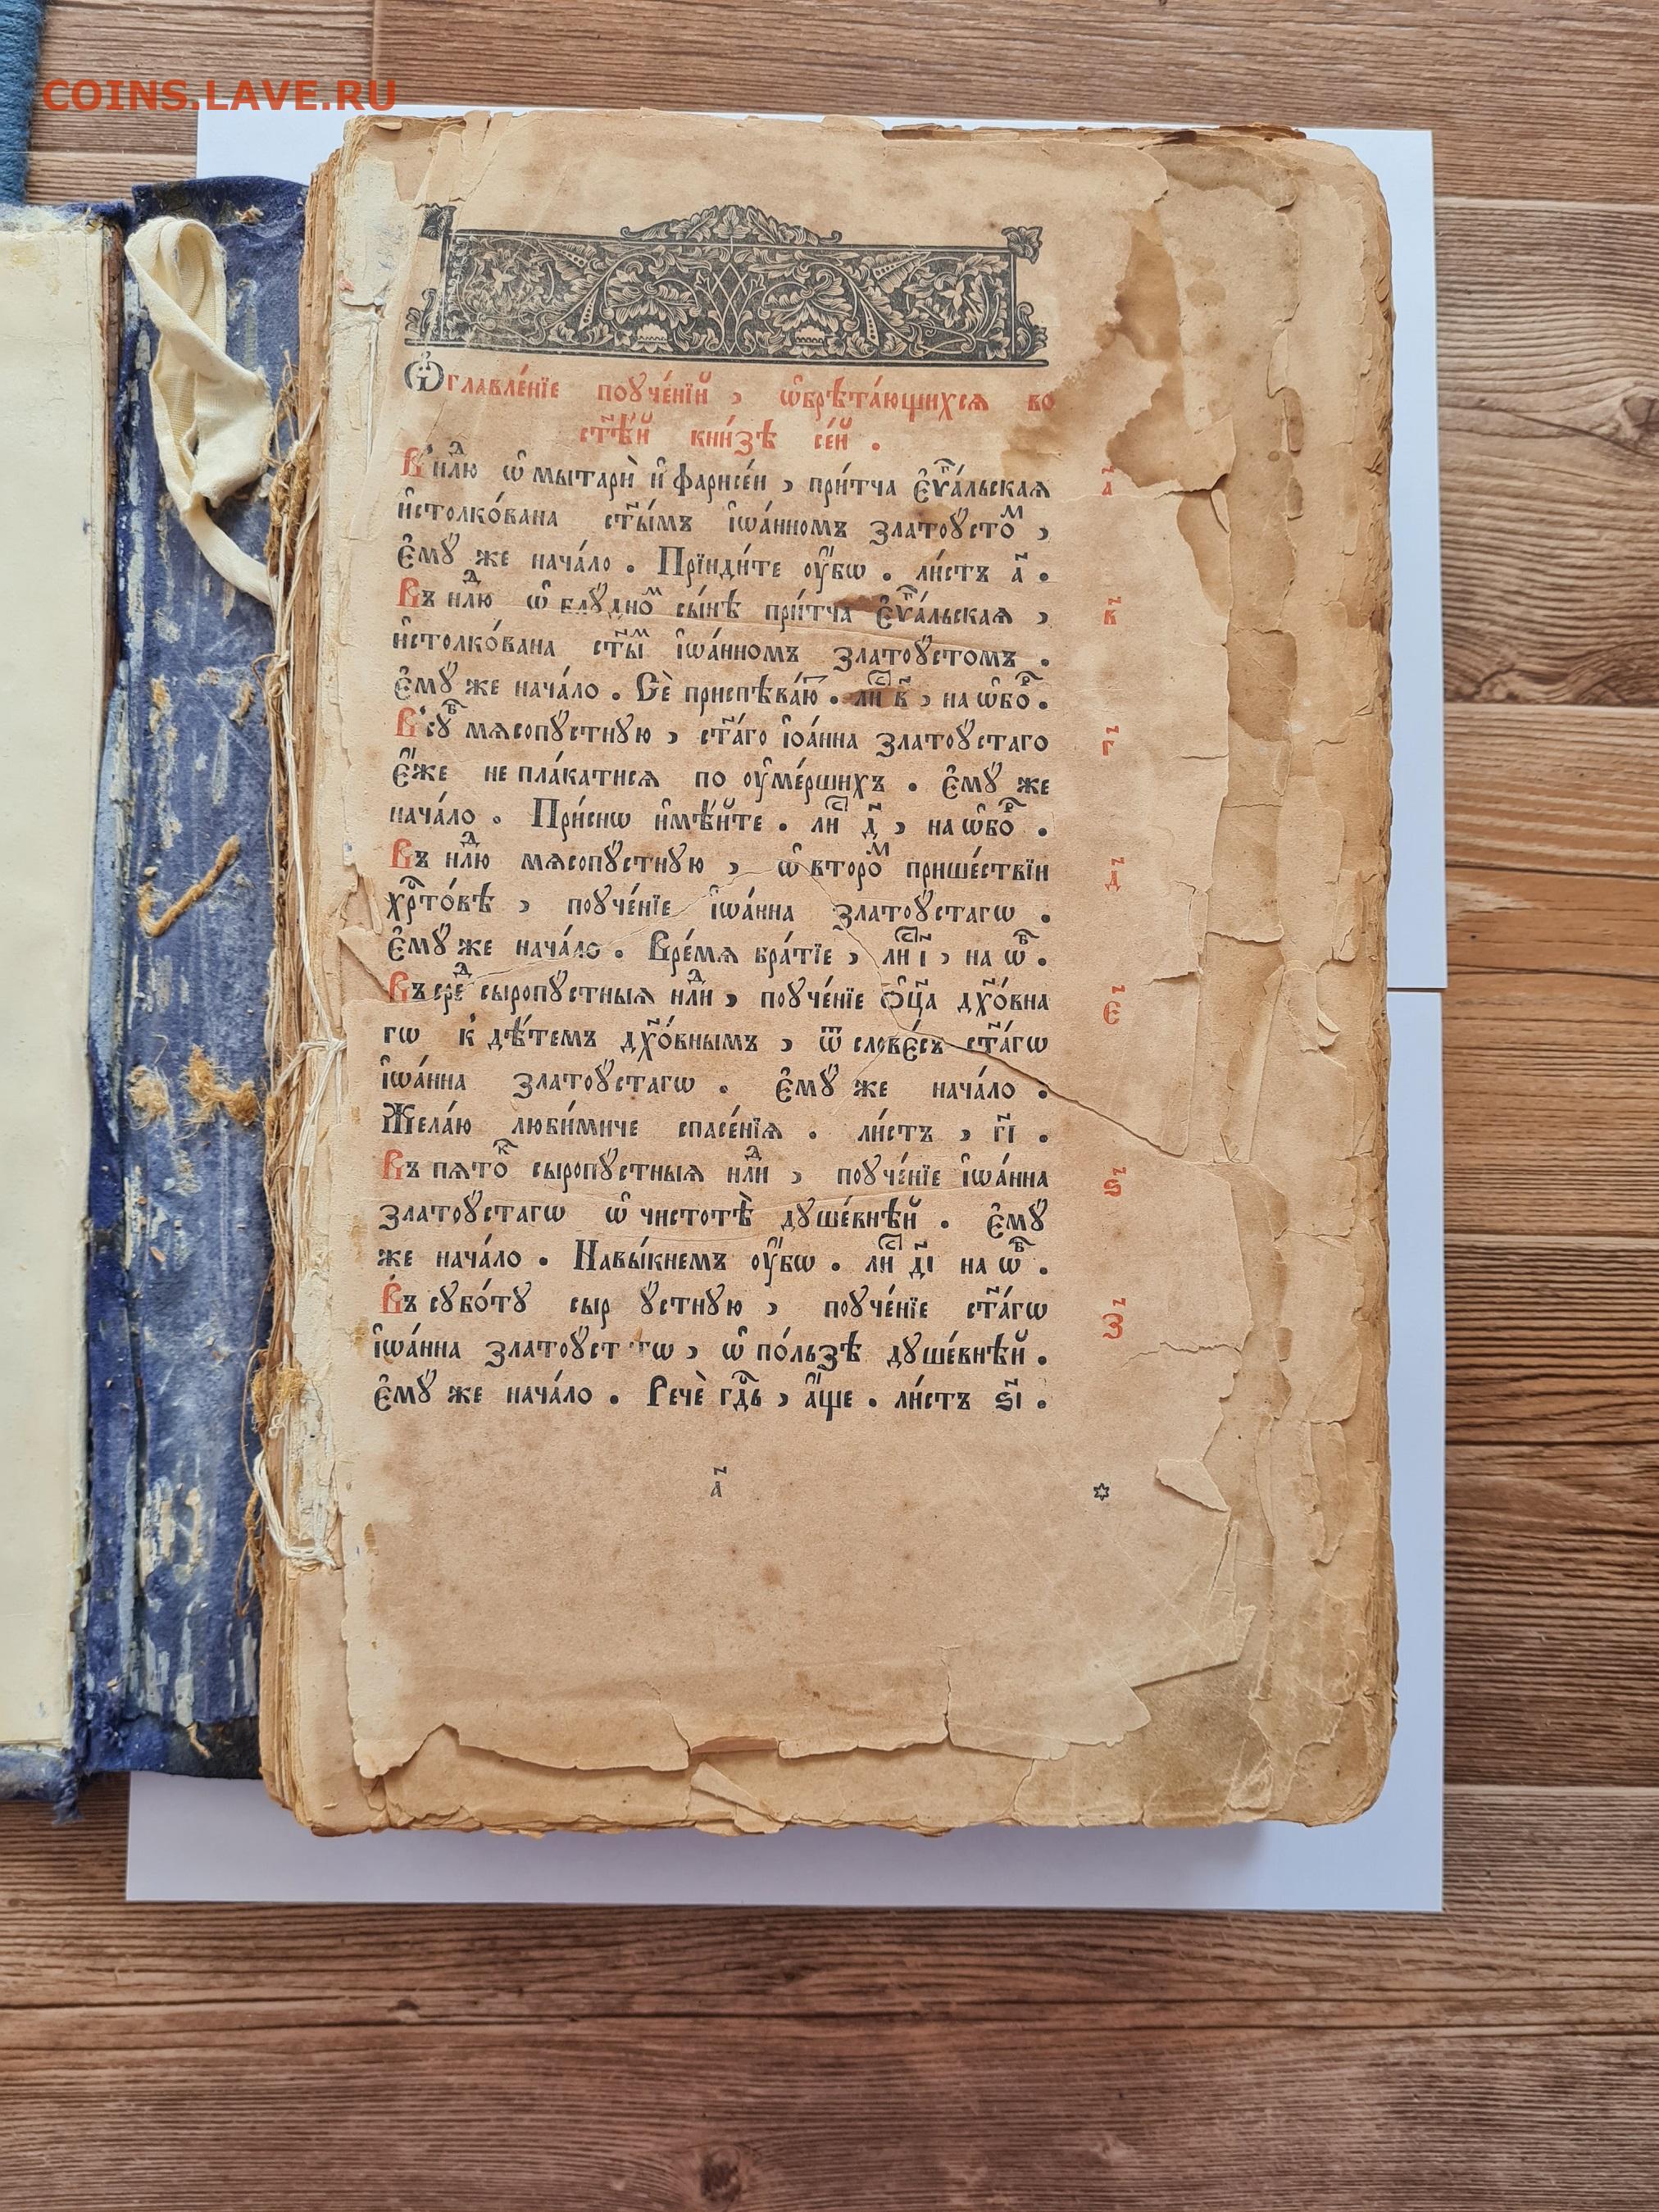 COINS.LAVE.RU
Ѻ҆главле́нїе поꙋче́нїй , ѡ҆брѣта́ющихсѧ во
ст҃ѣ́й кни́зѣ се́й .
В' нлⷣю ѡ҆ мытарѝ и҆ фарисе́и , при́тча є҆ѵⷢ҇а́льскаѧ а҃
и҆столко́вана ст҃ы́мъ і҆ѡа́нномъ златоꙋстоⷨ ,
є҆мꙋ́ же нача́ло . Прїиди́те ᲂу҆́бѡ . ли́стъ а҃ .
Въ нлⷣю ѡ҆ блꙋдноⷨ сы́нѣ при́тча є҆ѵⷢ҇а́льскаѧ , в҃
и҆столко́вана ст҃ыⷨ і҆ѡа́нномъ златоꙋстомъ .
є҆мꙋ́ же нача́ло . Сѐ приспѣва́ю . лиⷭ҇ в҃ , на ѡ҆боⷬ҇ .
В' сꙋⷠ мѧсопꙋстнꙋю , ст҃а́го і҆ѡа́нна златоꙋстаго г҃
є҆́же не пла́катисѧ по ᲂу҆ме́ршихъ . є҆мꙋ́ же
нача́ло . При́снѡ и҆мѣ́йте . лиⷭ҇ д҃ , на ѡ҆боⷬ҇ .
Въ нлⷣю мѧсопꙋстнꙋю , ѡ҆ второⷨ прише́ствїи д҃
хрⷭ҇то́вѣ , поꙋче́нїе і҆ѡа́нна златоꙋстагѡ .
є҆мꙋ́ же нача́ло . Вре́мѧ бра́тїе , лиⷭ҇ і҃ , на ѡ҆ⷠ .
Въ среⷣ сыропꙋстныѧ нлⷣи , поꙋче́нїе ѻ҆ц҃а дх҃о́вна є҃
гѡ к' дѣ́темъ дх҃о́внымъ , ѿ слове́съ ст҃а́гѡ
і҆ѡа́нна златоꙋстагѡ . є҆мꙋ́ же нача́ло .
Жела́ю люби́миче спасе́нїѧ . ли́стъ , г҃і .
Въ пѧтоⷦ҇ сыропꙋстныѧ нлⷣи , поꙋче́нїе і҆ѡа́нна ѕ҃
златоꙋстагѡ ѡ҆ чистотѣ̀ дꙋше́внѣй . є҆мꙋ́
же нача́ло . Навы́кнемъ ᲂу҆́бѡ . лиⷭ҇ д҃і на ѡ҆ⷠ .
Въ сꙋбо́тꙋ сыр ꙋстнꙋю , поꙋче́нїе ст҃а́гѡ з҃
і҆ѡа́нна златоꙋст гѡ , ѡ҆ по́льзѣ дꙋше́внѣй .
є҆мꙋ́ же нача́ло . Речѐ гдⷭ҇ь , а҆́ще . ли́стъ ѕ҃і .
а҃